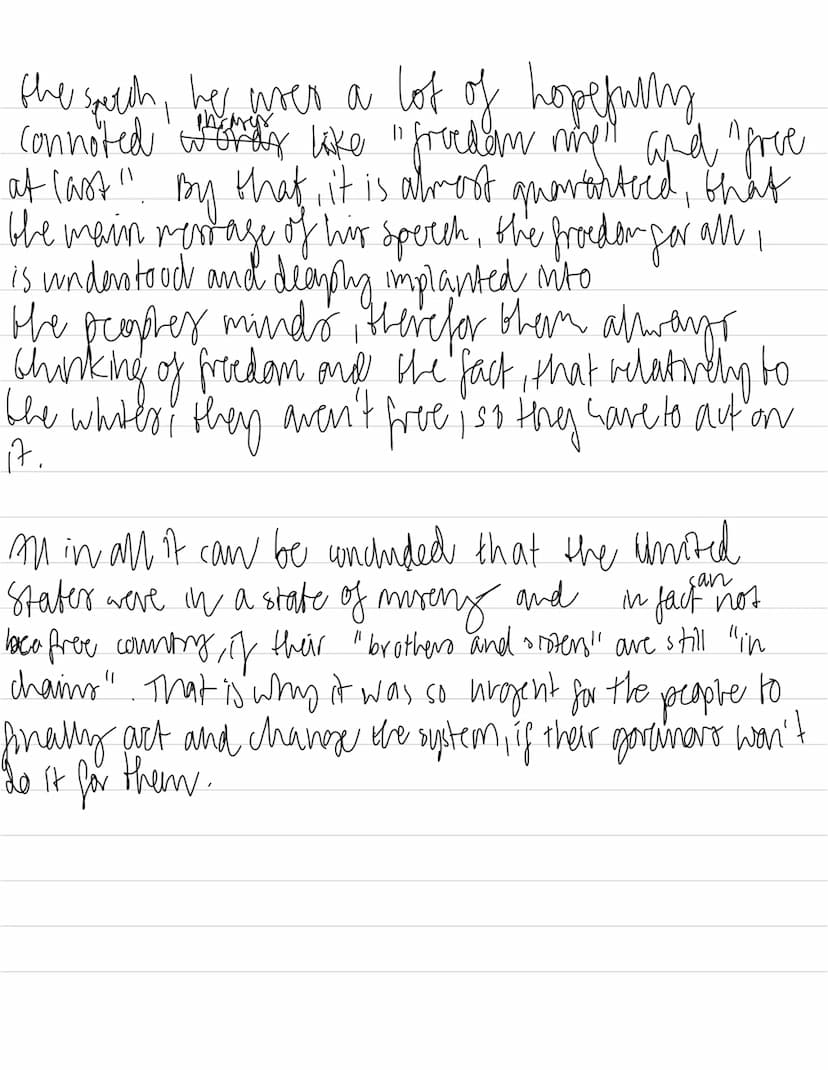 the speech, he uses a lot of hopefully
connoted words like "freedom ring" and "free
at last". By that, it is almost guaranteed, that
the main message of his speech, the freedom for all,
is understood and deeply implanted into
the peoples minds, therefor them always
thinking of freedom and the fact, that relatively to
the whites, they aren't free, so they have to act on
it.
All in all it can be concluded that the United
can
States were in a state of misery and in fact not
be a free country, if their "brothers and sisters" are still "in
chains". That is why it was so urgent for the people to
finally act and change the system, if their
do it for them.